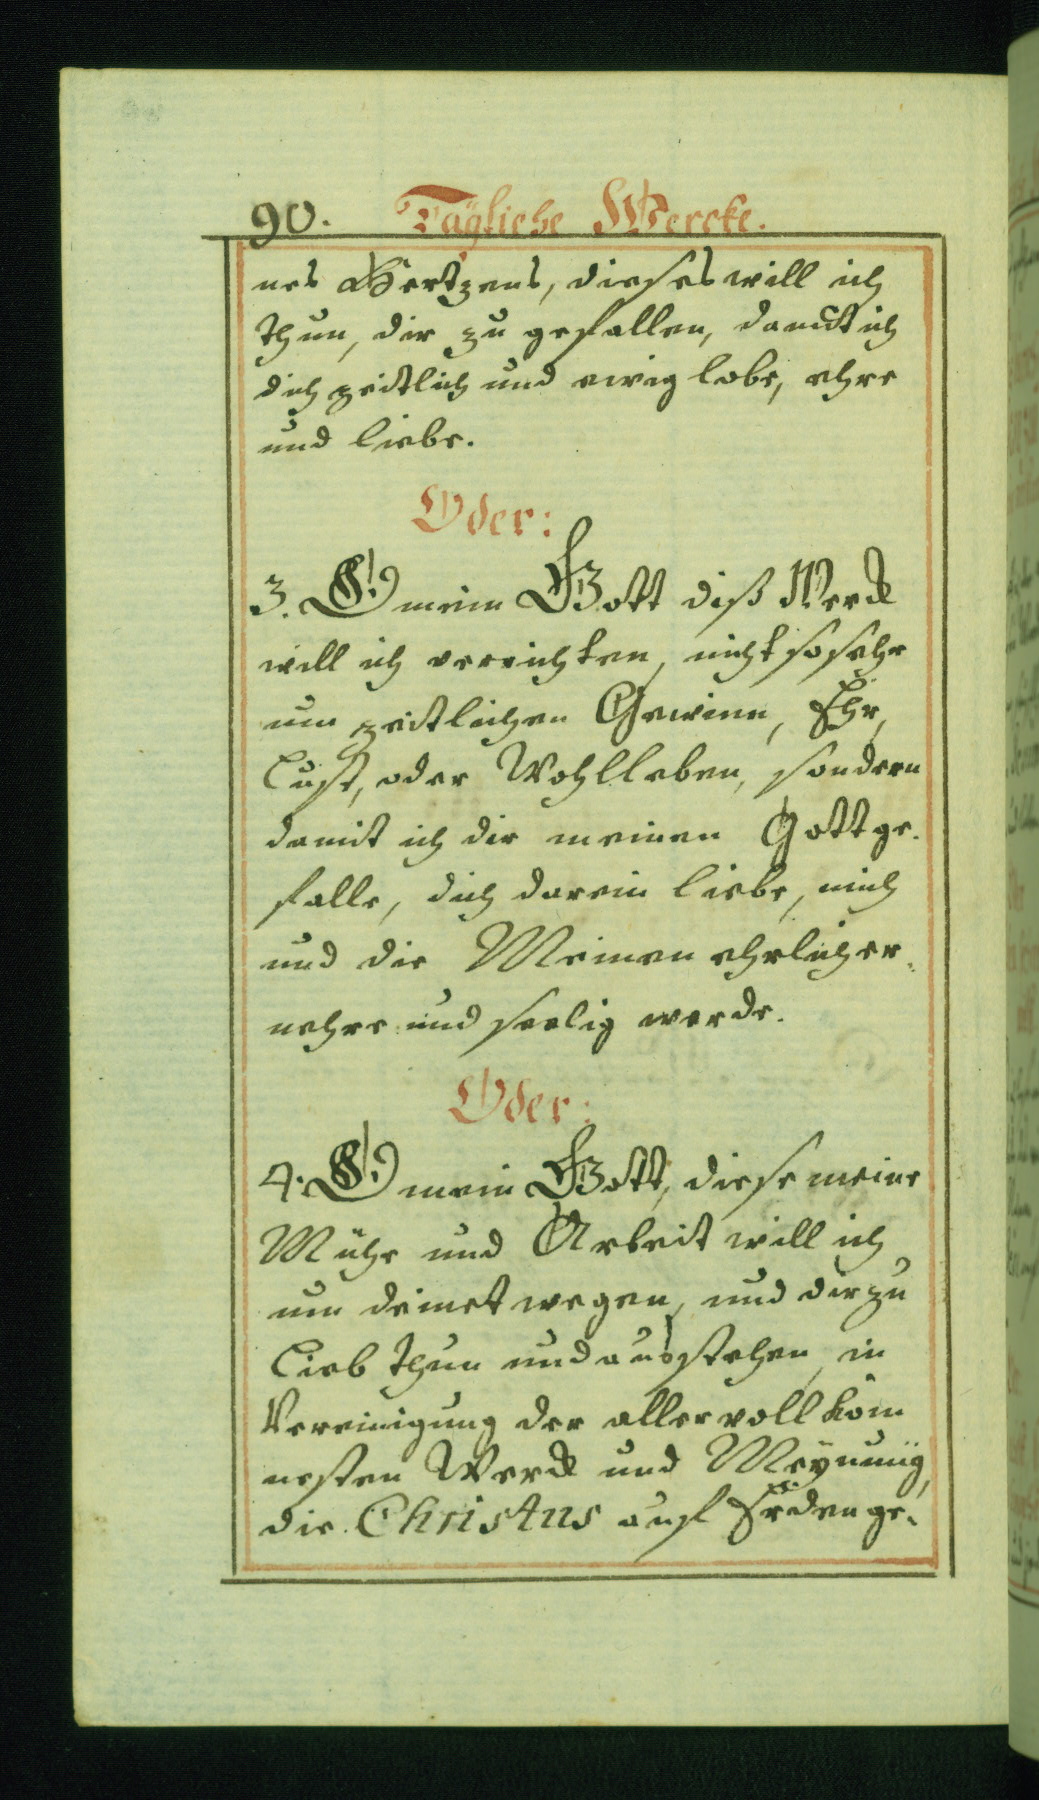 90. Tägliche Wercke.
nes Hertzens, dieses will ich
thun, dir zu gefallen, damit ich
dich zeitlich und ewig lobe, ehre
und liebe.
Oder:
3. O mein Gott diß Werck
will ich verrichten, nicht so sehr
um zeitlichen Gewinn, Ehr,
Lust, oder Wohlleben, sondern
damit ich dir meinen Gott ge-
falle, dich darein liebe, mich
und die Meinen ehrlich er-
nehre und seelig werde.
Oder:
4. O mein Gott, diese meine
Mühe und Arbeit will ich
um deinet wegen, und dir zu
Lieb thun und ausstehen, in
Vereinigung der aller voll kom̄
nesten Werck und Meÿnung,
die Christus auf Erden ge-